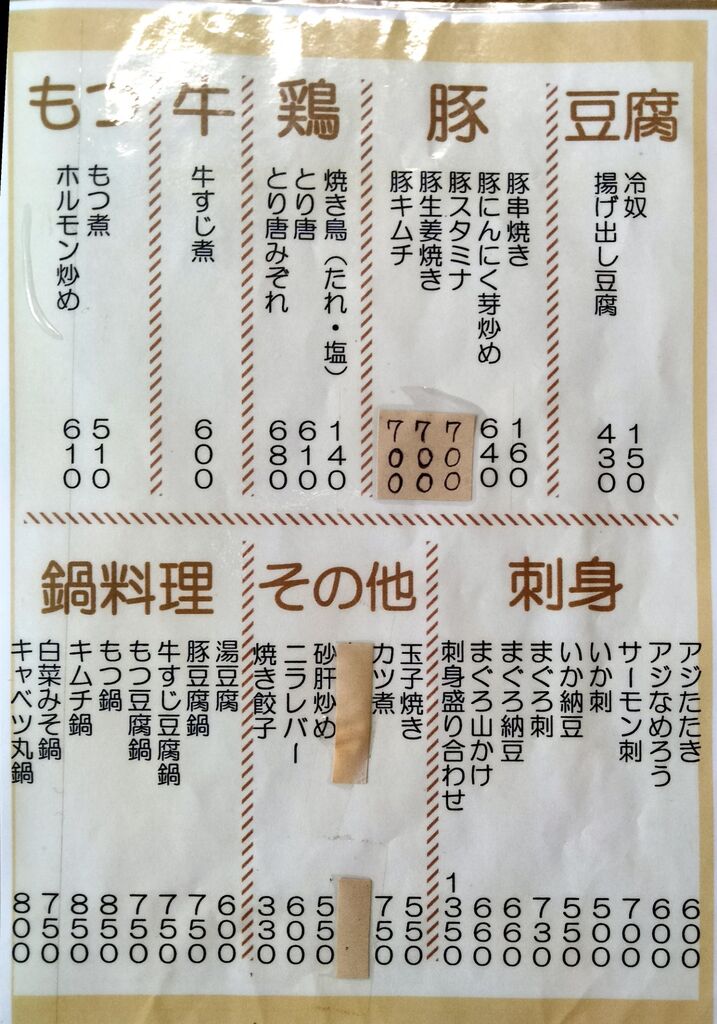 豆腐
冷奴 150
揚げ出し豆腐 430
豚
豚串焼き 160
豚にんにく芽炒め 640
豚スタミナ 700
豚生姜焼き 700
豚キムチ 700
鶏
焼き鳥（たれ・塩） 140
とり唐 610
とり唐みぞれ 680
牛
牛すじ煮 600
もつ
もつ煮 510
ホルモン炒め 610
刺身
アジたたき 600
アジなめろう 600
サーモン刺 700
いか刺 500
いか納豆 550
まぐろ刺 730
まぐろ納豆 660
まぐろ山かけ 660
刺身盛り合わせ 1350
その他
玉子焼き 550
カツ煮 750
砂肝炒め 550
ニラレバー 600
焼き餃子 330
鍋料理
湯豆腐 600
豚豆腐鍋 750
牛すじ豆腐鍋 750
もつ豆腐鍋 750
もつ鍋 850
キムチ鍋 850
白菜みそ鍋 750
キャベツ丸鍋 800